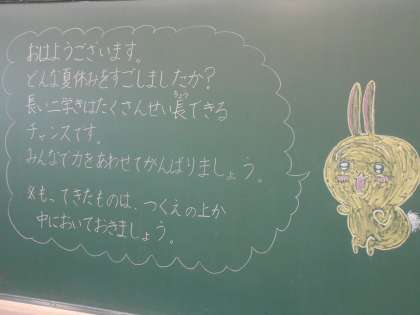 おはようございます。
どんな夏休みをすごしましたか？
長い二学きはたくさんせい長できる
ちょう
チャンスです。
みんなで力をあわせてがんばりましょう。
※もってきたものは、つくえの上か
中においておきましょう。